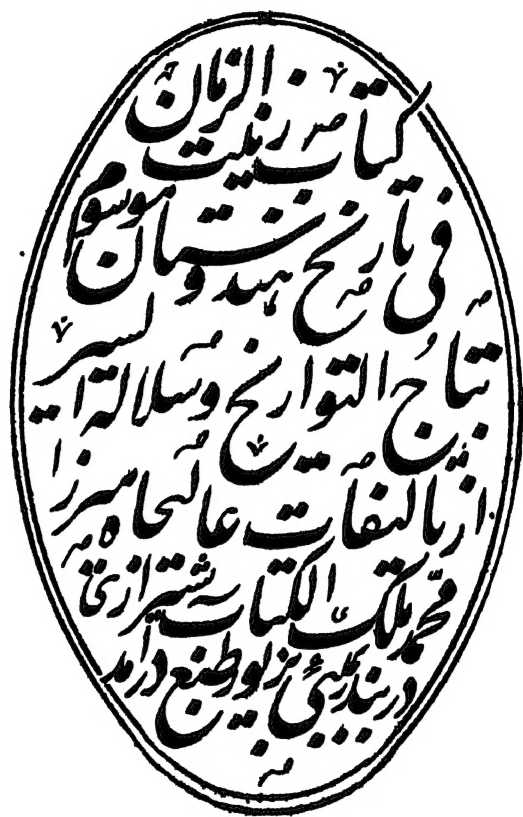 کتاب زینت الزمان
فی تاریخ هندوستان موسوم
بتاج التواریخ وسلالة السیر
از تالیفات عالیجاه میرزا
محمد ملک الکتاب شیرازی
در بندر بمبئی بزیور طبع درآمد